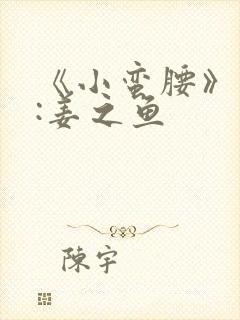 《小蛮腰》
:姜之鱼
陳宇